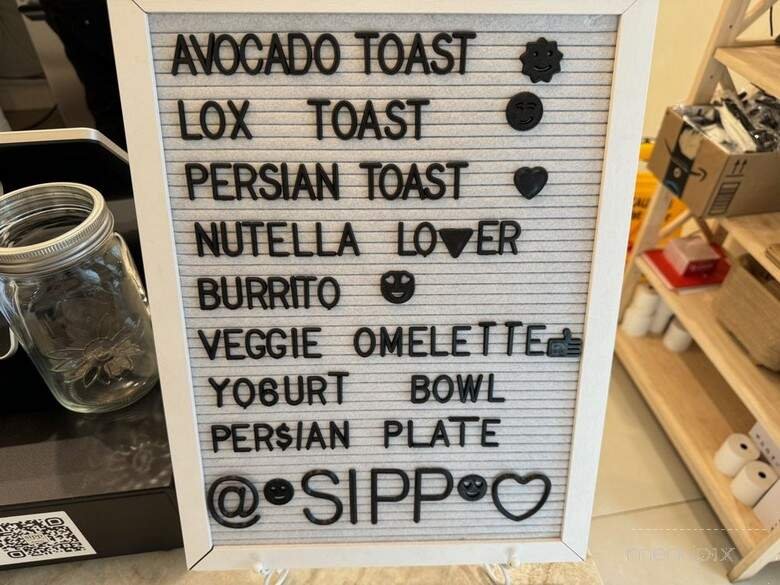 AVOCADO TOAST
LOX TOAST
PERSIAN TOAST
NUTELLA LO▼ER
BURRITO
VEGGIE OMELETTE
YO6URT BOWL
PER$IAN PLATE
@ SIPP
menupix